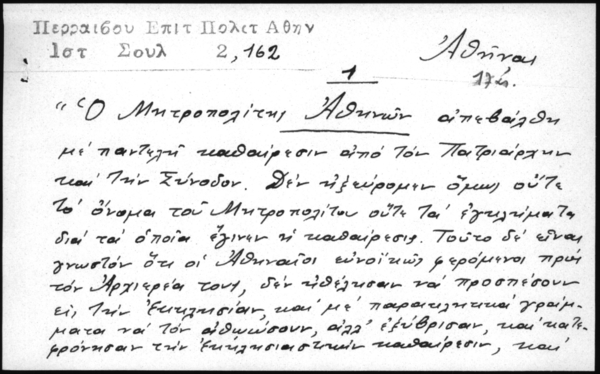 Περραιβου Επιτ Πολιτ Αθην
Ιστ Σουλ 2,162
Ἀθῆναι
1
"Ὁ Μητροπολίτης Ἀθηνῶν ἀπεβλήθη
μέ παντελῆ καθαίρεσιν ἀπό τόν Πατριάρχην
καί τήν Σύνοδον. Δέν ἠξεύρομεν ὅμως οὔτε
τό ὄνομα τοῦ Μητροπολίτου οὔτε τά ἐγκλήματα
διά τά ὁποῖα ἔγινεν ἡ καθαίρεσις. Τοῦτο δέ εἶναι
γνωστόν ὅτι οἱ Ἀθηναῖοι εὐνοϊκῶς φερόμενοι πρός
τόν Ἀρχιερέα τους, δέν ἠθέλησαν νά προσπέσουν
εἰς τήν Ἐκκλησίαν, καί μέ παρακλητικά γράμ-
ματα νά τόν ἀθωώσουν, ἀλλ' ἐξύβρισαν, καί κατε-
φρόνησαν τήν ἐκκλησιαστικήν καθαίρεσιν, καί